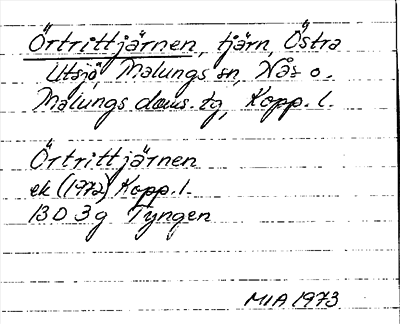 Örtrittjärnen, tjärn, Östra
Utsjö, Malungs sn, Nås o.
Malungs doms. tg, Kopp. l.
Örtrittjärnen
ek (1972) Kopp. l.
13D 3g Tyngen
MIA 1973